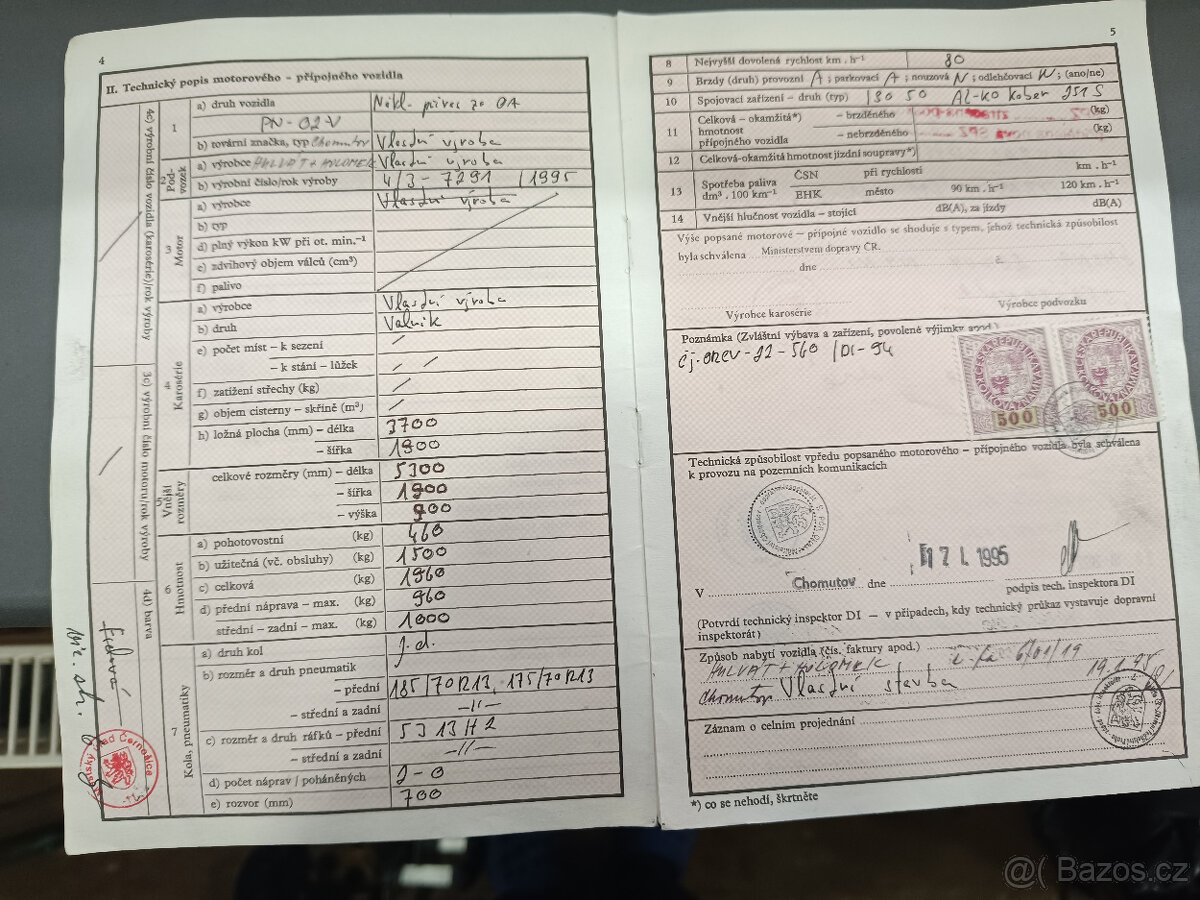 4
II. Technický popis motorového – přípojného vozidla
4c) výrobní číslo vozidla (karosérie)/rok výroby
3c) výrobní číslo motoru/rok výroby
4d) barva
1
a) druh vozidla
PN-02-V
b) tovární značka, typ Chomutov Vlastní výroba
2 Podvozek
a) výrobce Vlastní výroba
b) výrobní číslo/rok výroby 4/3-7291 /1995
3 Motor
a) výrobce Vlastní výroba
b) typ
d) plný výkon kW při ot. min.⁻¹
e) zdvihový objem válců (cm³)
f) palivo
4 Karosérie
a) výrobce Vlastní výroba
b) druh Valník
e) počet míst – k sezení
– k stání – lůžek
f) zatížení střechy (kg)
g) objem cisterny – skříně (m³)
h) ložná plocha (mm) – délka 3700
– šířka 1900
5 Vnější rozměry
celkové rozměry (mm) – délka 5300
– šířka 1900
– výška 900
6 Hmotnost
a) pohotovostní (kg) 460
b) užitečná (vč. obsluhy) (kg) 1500
c) celková (kg) 1960
d) přední náprava – max. (kg) 960
střední – zadní – max. (kg) 1000
7 Kola, pneumatiky
a) druh kol j.d.
b) rozměr a druh pneumatik
– přední 185/70R13, 175/70R13
– střední a zadní –//–
c) rozměr a druh ráfků – přední 5J 13 H2
– střední a zadní –//–
d) počet náprav / poháněných 2-0
e) rozvor (mm) 700
5
8 Nejvyšší dovolená rychlost km . h⁻¹ 80
9 Brzdy (druh) provozní A; parkovací A; nouzová N; odlehčovací N; (ano/ne)
10 Spojovací zařízení – druh (typ) ISO 50 AL-KO Kober 251S
11 Celková – okamžitá*) hmotnost přípojného vozidla
– brzděného (kg)
– nebrzděného (kg)
12 Celková-okamžitá hmotnost jízdní soupravy*)
13 Spotřeba paliva dm³ . 100 km⁻¹
ČSN při rychlosti km . h⁻¹
EHK město 90 km . h⁻¹ 120 km . h⁻¹
14 Vnější hlučnost vozidla – stojící dB(A), za jízdy dB(A)
Výše popsané motorové – přípojné vozidlo se shoduje s typem, jehož technická způsobilost
byla schválena Ministerstvem dopravy ČR.
dne
Výrobce karosérie
Výrobce podvozku
Poznámka (Zvláštní výbava a zařízení, povolené výjimky apod.)
ČESKÁ REPUBLIKA
KOLKOVÁ ZNÁMKA
500
ČESKÁ REPUBLIKA
KOLKOVÁ ZNÁMKA
500
Technická způsobilost vpředu popsaného motorového – přípojného vozidla byla schválena
k provozu na pozemních komunikacích
V Chomutov dne 17 1. 1995
podpis tech. inspektora DI
(Potvrdí technický inspektor DI — v případech, kdy technický průkaz vystavuje dopravní
inspektorát)
Způsob nabytí vozidla (čís. faktury apod.)
19.1.95
Chomutov Vlastní stavba
Záznam o celním projednání
*) co se nehodí, škrtněte
@( Bazos.cz